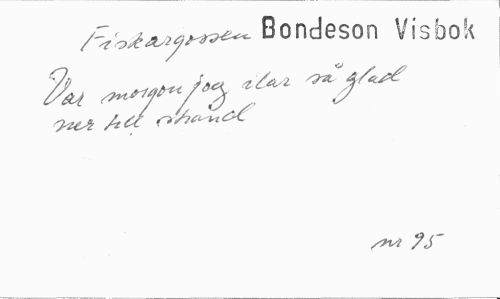 Fiskargossen Bondeson Visbok
Var morgon jag ilar så glad
ner till strand
nr 95